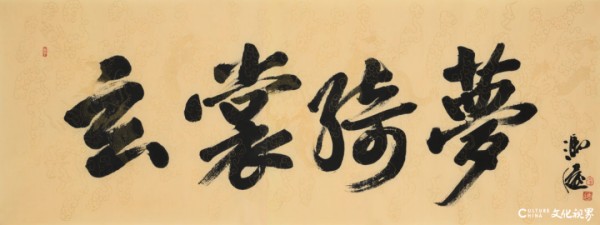 玄裳綺夢
CULTURE
CHINA 文化视界